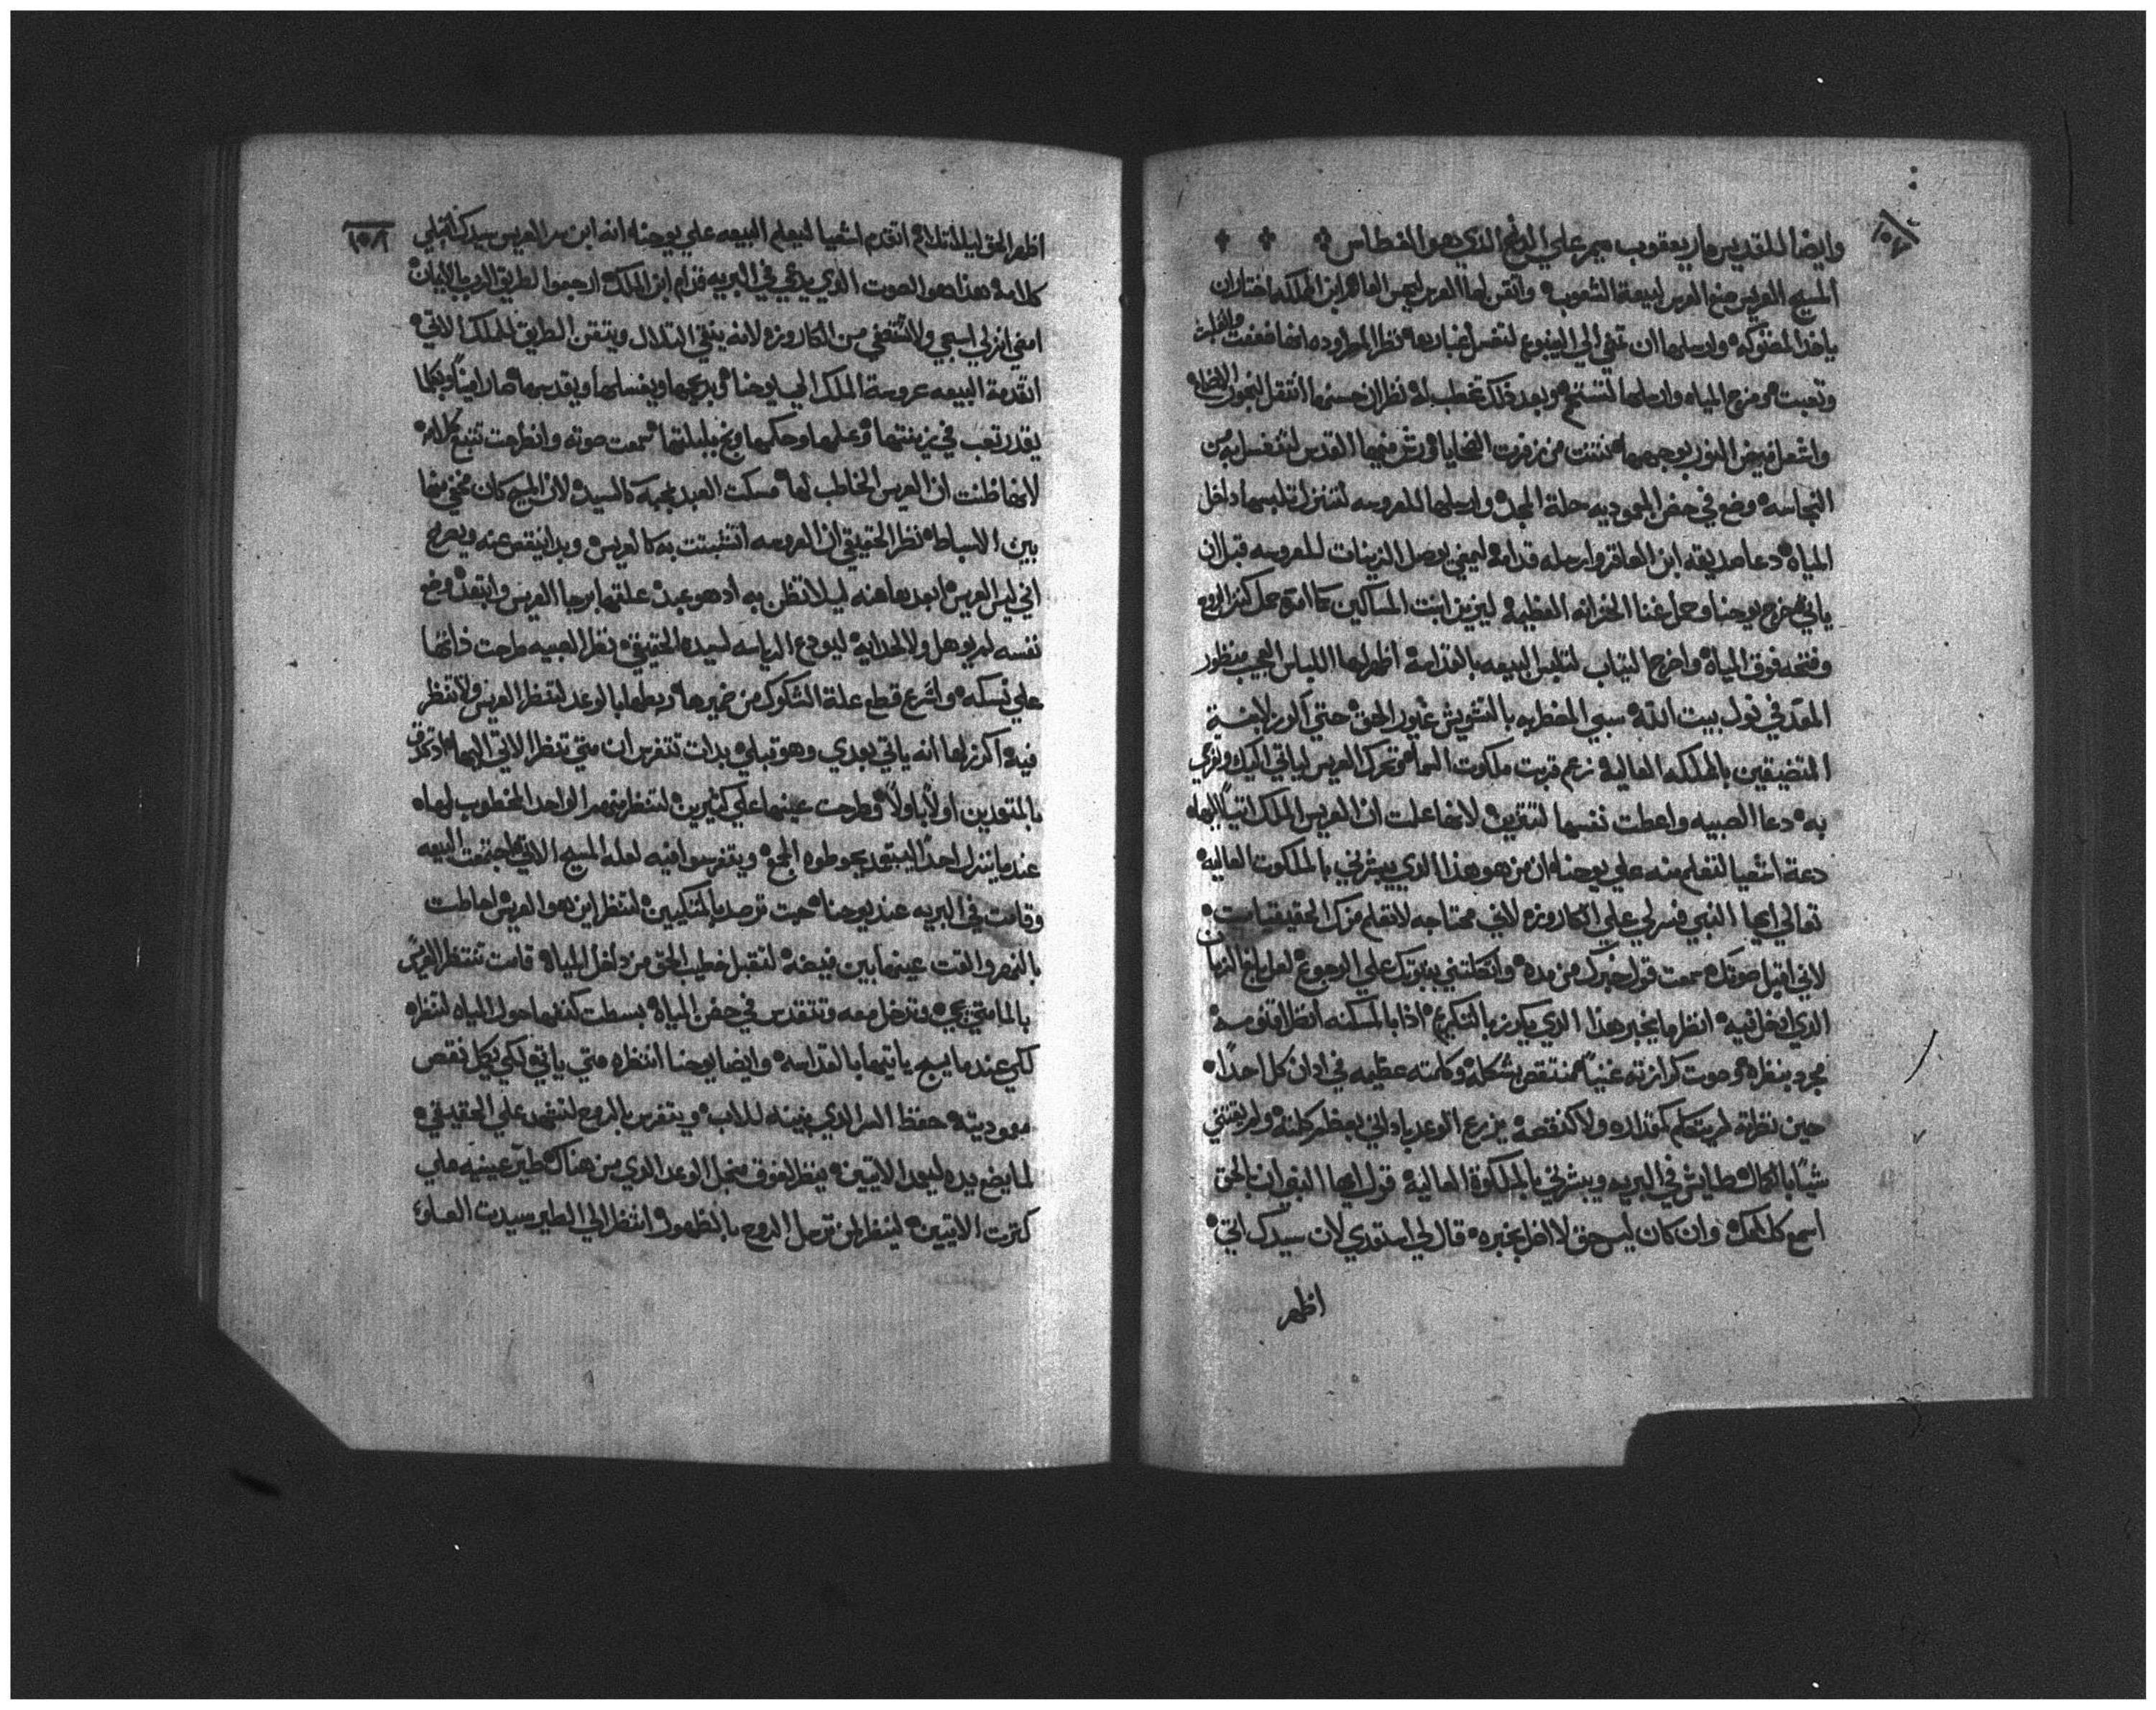 وايضا للقديس مار يعقوب ميمر علي الدنح الذي هو الغطاس
المسيح العريس صنع العرس لبيعة الشعوب واتقن لها العرس ابن المملكه اختار ان
ياخد المفتوكه وارسلها ان تمضي الي الينبوع لتغسل غبارها نظر المطروده انها ضعفت
وتعبت ومزج المياه وارسلها لتستحم وبعد ذلك تخطب له نظر ان حسنها انتقل
واشعل فيض النور بوجهها من زفرت الضحايا ورش مياه القدس لتغتسل به من
النجاسه وضع في حضن المعموديه حلة المجد وارسلها للعروسه لتنزل تلبسها داخل
المياه دعا صديقه ابن العاقر وارسله قدامه ليمضي يوصل الزينات للعروسه قبل ان
ياتي خرج يوحنا وحمل غنا الخزانه العظيمه ليزين ابنت المساكين كما امره حمل كنز الروح
وفتحه فوق المياه واخرج التياب لتلبس البيعه بالقداسه اظهر لها اللباس العجيب منظور
المعد في نول بيت الله سبي المخطوبه بالتشويش غيور الحق حتي اكرز لابنة
المتضيقين بالمملكه العاليه زعم قربت ملكوت السما وتحرك العريس لياتي اليك
به دعا الصبيه واعطت نفسها لتتزين لانها علمت ان العريس الملك اتيا اليها
دعة اشعيا لتتعلم منه علي يوحنا ان من هو هذا الذي يبشرني بالملكوت العاليه
تعالي ايها النبي فسر لي علي الكاروزه لاني محتاجه لاتعلم منك الحقيقيات
لاني اقبل صوتك سمعت قول خبرك من مده واتكلتني بنبوتك علي الرجوع لعل بلغ الزمان
الذي ادخل فيه انظر ما يخبر هذا الذي يكرز بالتكريم اذا بالمسكنه انظر اقنومه
مجرد بنظره وصوت كرازته غنيا منتقص بشكله وكلمته عظيمه في ادان كل احدا
حين نظرته لم يتكلم كمقداره ولا كنقصه يزرع الوعد باداني بعظم كلمته ولم يقتني
شيا بالكمال طايش في البريه ويبشرني بالمملكة العاليه قول ايها النبي ان بالحق
اسمع كلامك وان كان ليس حق لا افرح بخبره قال لي استعدي لان سيدك اتي
اظهر
اظهر الحق ليلا اتقدم اشعيا ليعلم البيعه علي يوحنا انه ابن سر العريس سيدك
كلامه هذا هو الصوت الذي يدعي في البريه قدام ابن الملك ارجعوا لطريق الرب بالايمان
امضي انزلي اسجدي ولا تشتقفي من الكاروزه لانه ينقي التلال ويتقن الطريق للملك الاتي
اتقدمة البيعه عروسة الملك الي يوحنا ويغسلها ويقدسها صار امينا وبكلما
يقدر تعب في زينتها وعلمها وحكمها سمعت صوته وانطرحت تتبع كلامه
لانها ظنت ان العريس الخاطب لها مسكت العبد بمحبه كالسيد لان المسيح كان مخفي منها
بين الاسباط نظر الحقيقي ان العروسه اتشبتت به كالعريس وبدا ينقص عنه ويصرخ
اني ليس العريس ابعدها عنه ليلا تظن به اد هو عبد علقها برجا العريس وابتعد وضع
نفسه لم يوهل ولا لحدايه ليودع الرياسه لسيده الحقيقي نظر الصبيه طرحت ذاتها
علي نسكه واشرع قطع علة الشكوك من ضميرها ربطها بالوعد لتنظر العريس ولا تنظر
فيه اكرز لها انه ياتي بعدي وهو قبلي بدات تتفرس ان متي تنظر الاتي اليها
بالمتعمدين اولا باولا وطرحت عينها علي كثيرين لتنظر منهم الواحد المخطوب لها
عندما ينزل احدا ليتعمد يحوطوه الجمع ويتفرسوا فيه لعله المسيح الاتي اجتمعت البيعه
وقامت في البريه عند يوحنا ترصد لتنظر اين هو العريس احاطت
بالنهر والقت عينها بين فيضه لتقبل خطيب الحق من داخل المياه قامت تنتظر العريس
بالما متي يجي وتدخل معه وتتقدس في حضن المياه بسطت كنفها حول المياه لتنظره
لكي عندما يسبح ياتيها بالقداسه وايضا يوحنا انتظره متي ياتي لكي يكمل نقص
معموديته حفظ السر الذي بينه للاب ويتفرس بالروح لتشهد علي الحقيقي
لما يضع يده ليعمد الاتيين ينظر لفوق من اجل الوعد الذي من هناك طير عينيه علي
كترت الاتيين لينظر لمن ترسل الروح بالظهور انتظر الي الطير سيدت العلو